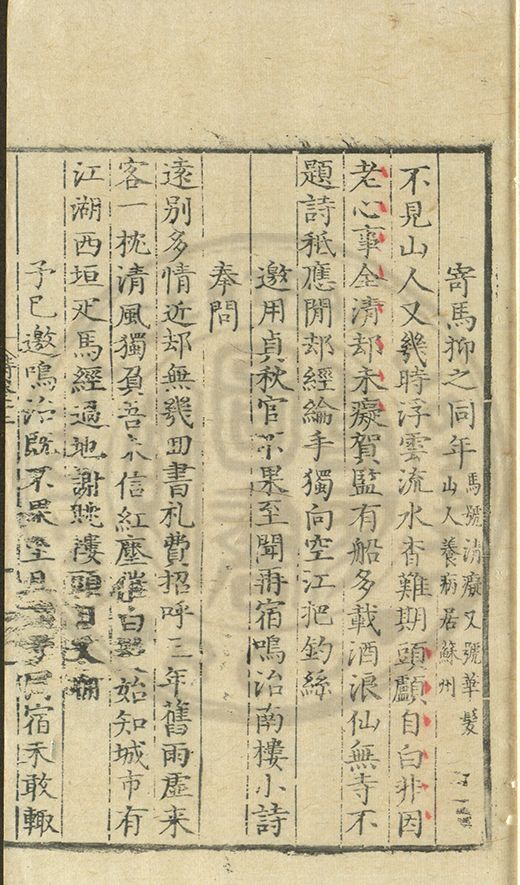 寄馬抑之同年
馬號清癡又號華髮
山人養病居蘇州
不見山人又幾時浮雲流水杳難期頭顱自白非因
老心事全清却未癡賀監有船多載酒浪仙無寺不
題詩秖應閒却經綸手獨向空江把釣絲
邀用貞秋官不果至聞再宿鳴治南樓小詩
奉問
遠别多情近却無幾回書札費招呼三年舊雨虛來
客一枕清風獨負吾未信紅塵催白始知城市有
江湖西垣疋馬經過地謝朓樓頭日又
予已邀鳴治既不果至宿未敢輙